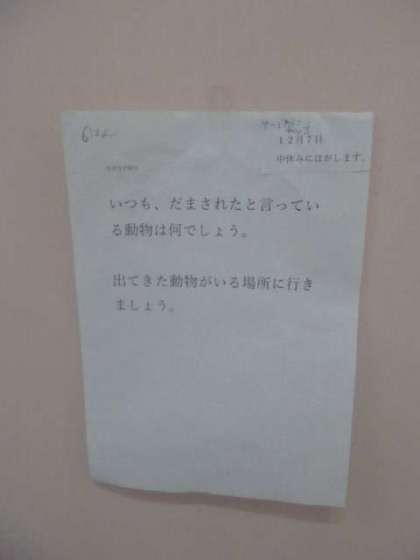 12月7日
中休みにはがします。
いつも、だまされたと言ってい
る動物は何でしょう。
出てきた動物がいる場所に行き
ましょう。